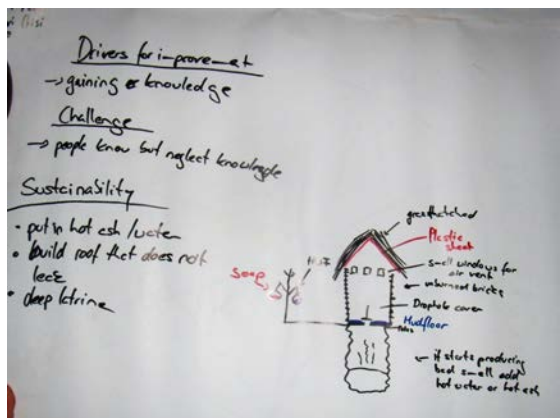 Drivers for improvement
→ gaining of knowledge
Challenge
→ people know but neglect knowledge
Sustainability
• put in hot ash/water
• build roof that does not
leak
• deep latrine
grassthatched
Plastic
sheet
small windows for
air vent
unburned bricks
Drophole cover
Mudfloor
Soap
← if starts producing
bad smell add
hot water or hot ash